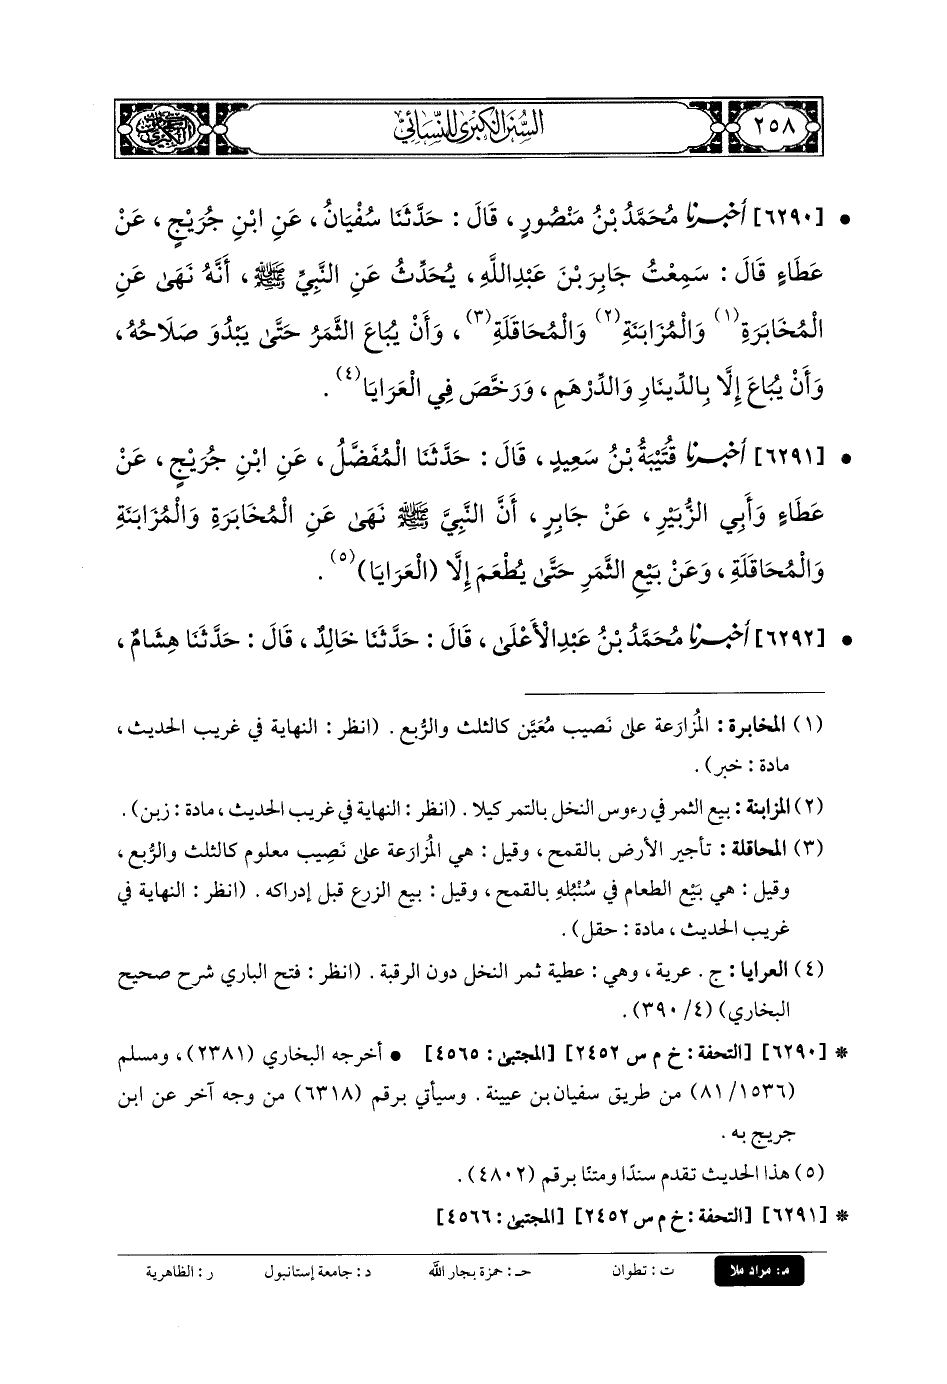 ٢٥٨
السُّنَنُ الكِبْرَى لِلنِّسَائِيِّ
• [٦٢٩٠] أخبرنا مُحَمَّدُ بْنُ مَنْصُورٍ ، قَالَ : حَدَّثَنَا سُفْيَانُ ، عَنِ ابْنِ جُرَيْجٍ ، عَنْ
عَطَاءٍ قَالَ : سَمِعْتُ جَابِرَ بْنَ عَبْدِاللَّهِ ، يُحَدِّثُ عَنِ النَّبِيِّ ﷺ ، أَنَّهُ نَهَى عَنِ
الْمُخَابَرَةِ(١) وَالْمُزَابَنَةِ(٢) وَالْمُحَاقَلَةِ(٣) ، وَأَنْ يُبَاعَ الثَّمَرُ حَتَّى يَبْدُوَ صَلَاحُهُ ،
وَأَنْ يُبَاعَ إِلَّا بِالدِّينَارِ وَالدِّرْهَمِ ، وَرَخَّصَ فِي الْعَرَايَا(٤) .
• [٦٢٩١] أخبرنا قُتَيْبَةُ بْنُ سَعِيدٍ ، قَالَ : حَدَّثَنَا الْمُفَضَّلُ ، عَنِ ابْنِ جُرَيْجٍ ، عَنْ
عَطَاءٍ وَأَبِي الزُّبَيْرِ ، عَنْ جَابِرٍ ، أَنَّ النَّبِيَّ ﷺ نَهَى عَنِ الْمُخَابَرَةِ وَالْمُزَابَنَةِ
وَالْمُحَاقَلَةِ ، وَعَنْ بَيْعِ الثَّمَرِ حَتَّى يُطْعَمَ إِلَّا (الْعَرَايَا)(٥) .
• [٦٢٩٢] أخبرنا مُحَمَّدُ بْنُ عَبْدِالْأَعْلَى ، قَالَ : حَدَّثَنَا خَالِدٌ ، قَالَ : حَدَّثَنَا هِشَامٌ ،
(١) المخابرة : المُزارعة على نَصيب مُعَيَّن كالثلث والرُّبع . (انظر : النهاية في غريب الحديث ،
مادة : خبر) .
(٢) المزابنة : بيع الثمر في رءوس النخل بالتمر كيلا . (انظر : النهاية في غريب الحديث ، مادة : زبن) .
(٣) المحاقلة : تأجير الأرض بالقمح ، وقيل : هي المُزارعة على نَصِيب معلوم كالثلث والرُّبع ،
وقيل : هي بَيْع الطعام في سُنْبُلهِ بالقمح ، وقيل : بيع الزرع قبل إدراكه . (انظر : النهاية في
غريب الحديث ، مادة : حقل) .
(٤) العرايا : ج . عرية ، وهي : عطية ثمر النخل دون الرقبة . (انظر : فتح الباري شرح صحيح
البخاري) (٤/ ٣٩٠) .
* [٦٢٩٠] [التحفة : خ م س ٢٤٥٢] [المجتبى : ٤٥٦٥] • أخرجه البخاري (٢٣٨١) ، ومسلم
(١٥٣٦/ ٨١) من طريق سفيان بن عيينة . وسيأتي برقم (٦٣١٨) من وجه آخر عن ابن
جريج به .
(٥) هذا الحديث تقدم سندًا ومتنًا برقم (٤٨٠٢) .
* [٦٢٩١] [التحفة : خ م س ٢٤٥٢] [المجتبى : ٤٥٦٦]
م: مراد ملا ت : تطوان حـ : حمزة بجار الله د : جامعة إستانبول ر : الظاهرية